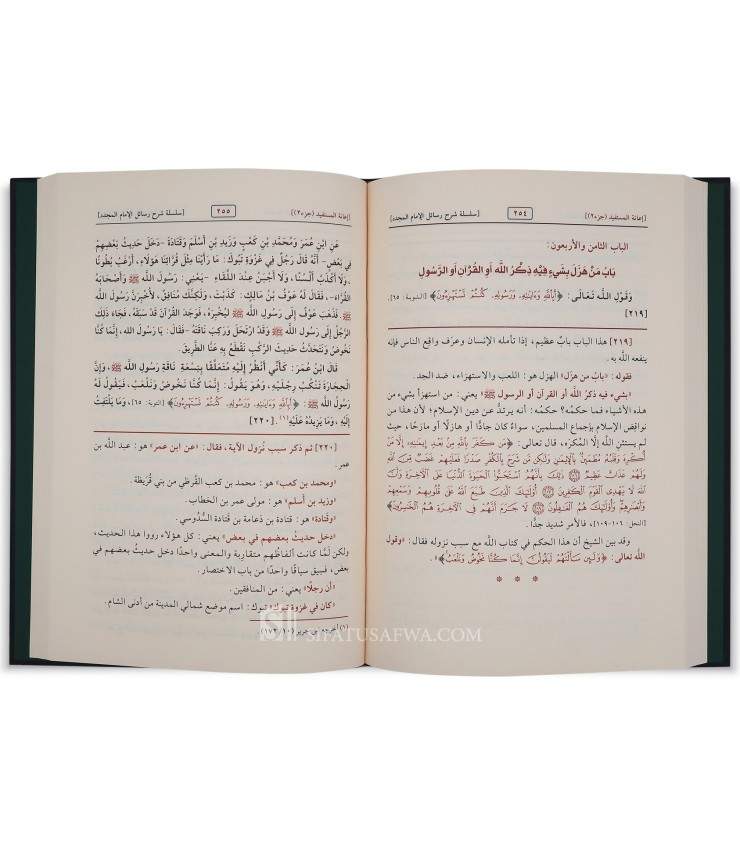 [إعانة المستفيد (جزء٢)]
٢٥٤
[سلسلة شرح رسائل الإمام المجدد]
الباب الثامن والأربعون:
بَابُ مَنْ هَزَلَ بِشَيءٍ فِيْهِ ذِكْرُ اللَّهِ أَوِ القُرْآنِ أَوِ الرَّسُولِ
وَقَوْلِ اللَّهِ تَعَالَى: ﴿أَبِٱللَّهِ وَءَايَٰتِهِۦ وَرَسُولِهِۦ كُنتُمْ تَسْتَهْزِءُونَ﴾ [التوبة: ٦٥].
[٢١٩]
[٢١٩] هذا الباب بابٌ عظيم، إذا تأمله الإنسان وعرَف واقع الناس فإنه
ينفعه اللَّه به.
فقوله: «بابُ من هزل» الهزل هو: اللعب والاستهزاء، ضد الجد.
«بشيء فيه ذكر اللَّه أو القرآن أو الرسول ﷺ» يعني: من استهزأ بشيء من
هذه الأشياء فما حكمُه؟ حكمُه: أنه يرتدُّ عن دين الإسلام؛ لأن هذا من
نواقض الإسلام بإجماع المسلمين، سواءٌ كان جادًّا أو هازلًا أو مازحًا، حيث
لم يستثنِ اللَّه إلَّا المُكرَه، قال تعالى: ﴿مَن كَفَرَ بِٱللَّهِ مِنۢ بَعْدِ إِيمَٰنِهِۦٓ إِلَّا مَنْ
أُكْرِهَ وَقَلْبُهُۥ مُطْمَئِنٌّۢ بِٱلْإِيمَٰنِ وَلَٰكِن مَّن شَرَحَ بِٱلْكُفْرِ صَدْرًا فَعَلَيْهِمْ غَضَبٌ مِّنَ ٱللَّهِ
وَلَهُمْ عَذَابٌ عَظِيمٌ ١٠٦ ذَٰلِكَ بِأَنَّهُمُ ٱسْتَحَبُّوا۟ ٱلْحَيَوٰةَ ٱلدُّنْيَا عَلَى ٱلْءَاخِرَةِ وَأَنَّ
ٱللَّهَ لَا يَهْدِى ٱلْقَوْمَ ٱلْكَٰفِرِينَ ١٠٧ أُو۟لَٰٓئِكَ ٱلَّذِينَ طَبَعَ ٱللَّهُ عَلَىٰ قُلُوبِهِمْ وَسَمْعِهِمْ
وَأَبْصَٰرِهِمْ وَأُو۟لَٰٓئِكَ هُمُ ٱلْغَٰفِلُونَ ١٠٨ لَا جَرَمَ أَنَّهُمْ فِى ٱلْءَاخِرَةِ هُمُ ٱلْخَٰسِرُونَ﴾
[النحل: ١٠٦-١٠٩]، فالأمر شديد جدًّا.
وقد بين الشيخ أن هذا الحكم في كتاب اللَّه مع سبب نزوله فقال: «وقول
اللَّه تعالى: ﴿وَلَئِن سَأَلْتَهُمْ لَيَقُولُنَّ إِنَّمَا كُنَّا نَخُوضُ وَنَلْعَبُ﴾».
* * *
[إعانة المستفيد (جزء٢)]
٢٥٥
[سلسلة شرح رسائل الإمام المجدد]
عَنِ ابْنِ عُمَرَ وَمُحَمَّدِ بْنِ كَعْبٍ وَزَيدِ بْنِ أَسْلَمَ وَقَتَادَةَ -دَخَلَ حَدِيثُ بَعْضِهِمْ
فِي بَعْضٍ- أَنَّهُ قَالَ رَجُلٌ فِي غَزْوَةِ تَبُوكَ: مَا رَأَيْنَا مِثْلَ قُرَّائِنَا هَؤُلَاءِ، أَرْغَبَ بُطُونًا
وَلَا أَكْذَبَ أَلْسُنًا، وَلَا أَجْبَنَ عِنْدَ اللِّقَاءِ -يَعْنِي: رَسُولَ اللَّهِ ﷺ وَأَصْحَابَهُ
القُرَّاءَ-، فَقَالَ لَهُ عَوْفُ بْنُ مَالِكٍ: كَذَبْتَ، وَلَكِنَّكَ مُنَافِقٌ، لَأُخْبِرَنَّ رَسُولَ اللَّهِ
ﷺ. فَذَهَبَ عَوْفٌ إِلَى رَسُولِ اللَّهِ ﷺ لِيُخْبِرَهُ، فَوَجَدَ القُرْآنَ قَدْ سَبَقَهُ، فَجَاءَ ذَلِكَ
الرَّجُلُ إِلَى رَسُولِ اللَّهِ ﷺ وَقَدِ ارْتَحَلَ وَرَكِبَ نَاقَتَهُ -فَقَالَ: يَا رَسُولَ اللهِ، إِنَّمَا كُنَّا
نَخُوضُ وَنَتَحَدَّثُ حَدِيثَ الرَّكْبِ نَقْطَعُ بِهِ عَنَّا الطَّرِيقَ.
قَالَ ابْنُ عُمَرَ: كَأَنِّي أَنْظُرُ إِلَيْهِ مُتَعَلِّقًا بِنِسْعَةِ نَاقَةِ رَسُولِ اللَّهِ ﷺ، وَإِنَّ
الحِجَارَةَ تَنْكُبُ رِجْلَيْهِ، وَهُوَ يَقُولُ: إِنَّمَا كُنَّا نَخُوضُ وَنَلْعَبُ، فَيَقُولُ لَهُ
رَسُولُ اللَّهِ ﷺ: ﴿أَبِٱللَّهِ وَءَايَٰتِهِۦ وَرَسُولِهِۦ كُنتُمْ تَسْتَهْزِءُونَ﴾ [التوبة: ٦٥]، وَمَا يَلْتَفِتُ
إِلَيْهِ، وَمَا يَزِيدُهُ عَلَيْهِ(١). [٢٢٠]
[٢٢٠] ثم ذكر سبب نُزول الآية، فقال: «عن ابن عمر» هو: عبد اللَّه بن
عمر.
«ومحمد بن كعب» هو: محمد بن كعب القُرظي من بني قُريظة.
«وزيد بن أسلم» هو: مولى عمر بن الخطاب.
«وقَتادة» هو: قتادة بن دَعامة بن قَتادة السَّدُوسي.
«دخل حديثُ بعضهم في بعض» يعني: كل هؤلاء رووا هذا الحديث،
ولكن لَمَّا كانت ألفاظُهم متقاربة والمعنى واحدًا دخل حديثُ بعضهم في
بعض، فسِيق سياقًا واحدًا من باب الاختصار.
«أن رجلًا» يعني: من المنافقين.
«كان في غزوة تبوك» تبوك: اسم موضع شمالي المدينة من أدنى الشام.
(١) أخرجه ابن جرير (١٠/ ١٧٣).
SIFATUSAFWA.COM